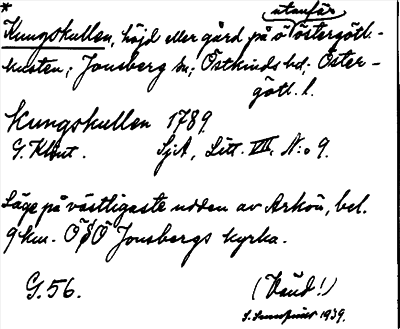 *
utanför
Kungskullen, höjd eller gård på ö östergötl.-
kusten; Jonsberg sn; Östkinds hd; Öster-
götl. l.
Kungskullen 1789.
G. Klint. SjA, Litt. VIII, N:o 9.
Läge på västligaste udden av Arkön, bel.
9 km. OSO Jonsbergs kyrka.
G. 56. (Vaud!)
1939.